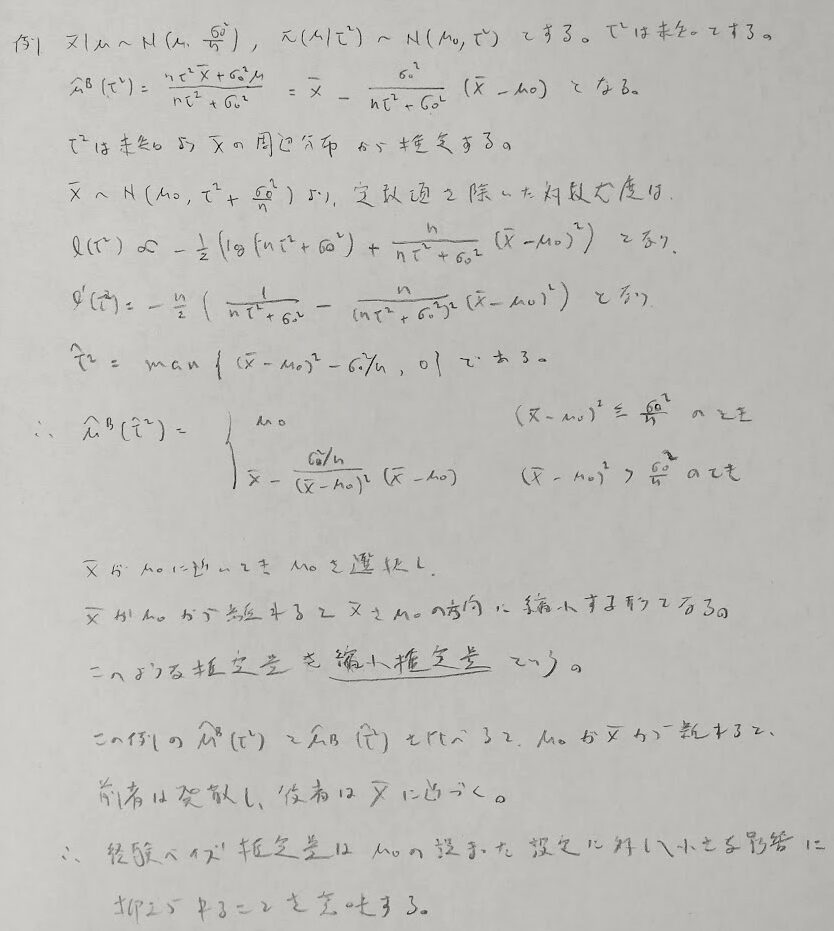 例) x̄|μ ~ N(μ, σ₀²/n), π(μ|τ²) ~ N(μ₀, τ²) とする。τ²は未知とする。
μ̂ᴮ(τ²) = (nτ²x̄ + σ₀²μ)/(nτ² + σ₀²) = x̄ - σ₀²/(nτ² + σ₀²) (x̄ - μ₀) となる。
τ²は未知より x̄の周辺分布から推定する。
x̄ ~ N(μ₀, τ² + σ₀²/n) より, 定数項を除いた対数尤度は,
l(τ²) ∝ -1/2 (log(nτ² + σ₀²) + n/(nτ² + σ₀²) (x̄ - μ₀)²) となり,
l'(τ²) = -n/2 ( 1/(nτ² + σ₀²) - n/(nτ² + σ₀²)² (x̄ - μ₀)² ) となり
τ̂² = max { (x̄ - μ₀)² - σ₀²/n, 0 } である。
∴ μ̂ᴮ(τ̂²) = { μ₀ (x̄ - μ₀)² ≦ σ₀²/n のとき
x̄ - (σ₀²/n)/(x̄ - μ₀)² (x̄ - μ₀) (x̄ - μ₀)² > σ₀²/n のとき
x̄が μ₀に近いとき μ₀を選択し,
x̄が μ₀から離れると x̄を μ₀の方向に縮小する形となる。
このような推定量を縮小推定量という。
この例の μ̂ᴮ(τ²) と μ̂ᴮ(τ̂²) を比べると, μ₀が x̄から離れると,
前者は発散し, 後者は x̄に近づく。
∴ 経験ベイズ推定量は μ₀の誤まった設定に対して小さな影響に
抑えられることを意味する。